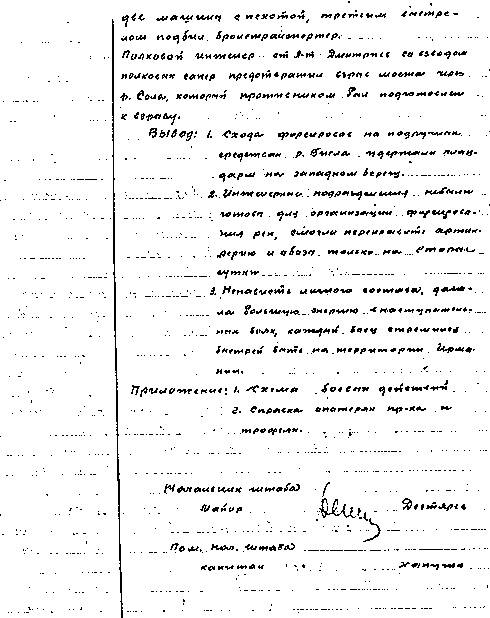 две машины с пехотой, третьим выстре-
лом подбил бронетранспортер.
Полковой инженер ст л-т Дмитриев со взводом
полковых сапер предотвратил взрыв моста через
р. Сола, который противником был подготовлен
к взрыву.
Вывод: 1. Сходу форсировав на подручных
средствах р. Висла удержали плац-
дарм на западном берегу.
2. Инженерные подразделения небыли
готовы для организации форсирова-
ния рек, смогли переправить артил-
лерию и обоз только на вторые
сутки
3. Ненависть личного состава, дава-
ла большую энергию в наступатель-
ных боях, каждый боец стремился
быстрей быть на территории Герма-
нии.
Приложение: 1. Схема боевых действий
2. Справка о потерях пр-ка и
трофеях.
Начальник штаба
Майор Дегтярев
Пом. нач. штаба
капитан